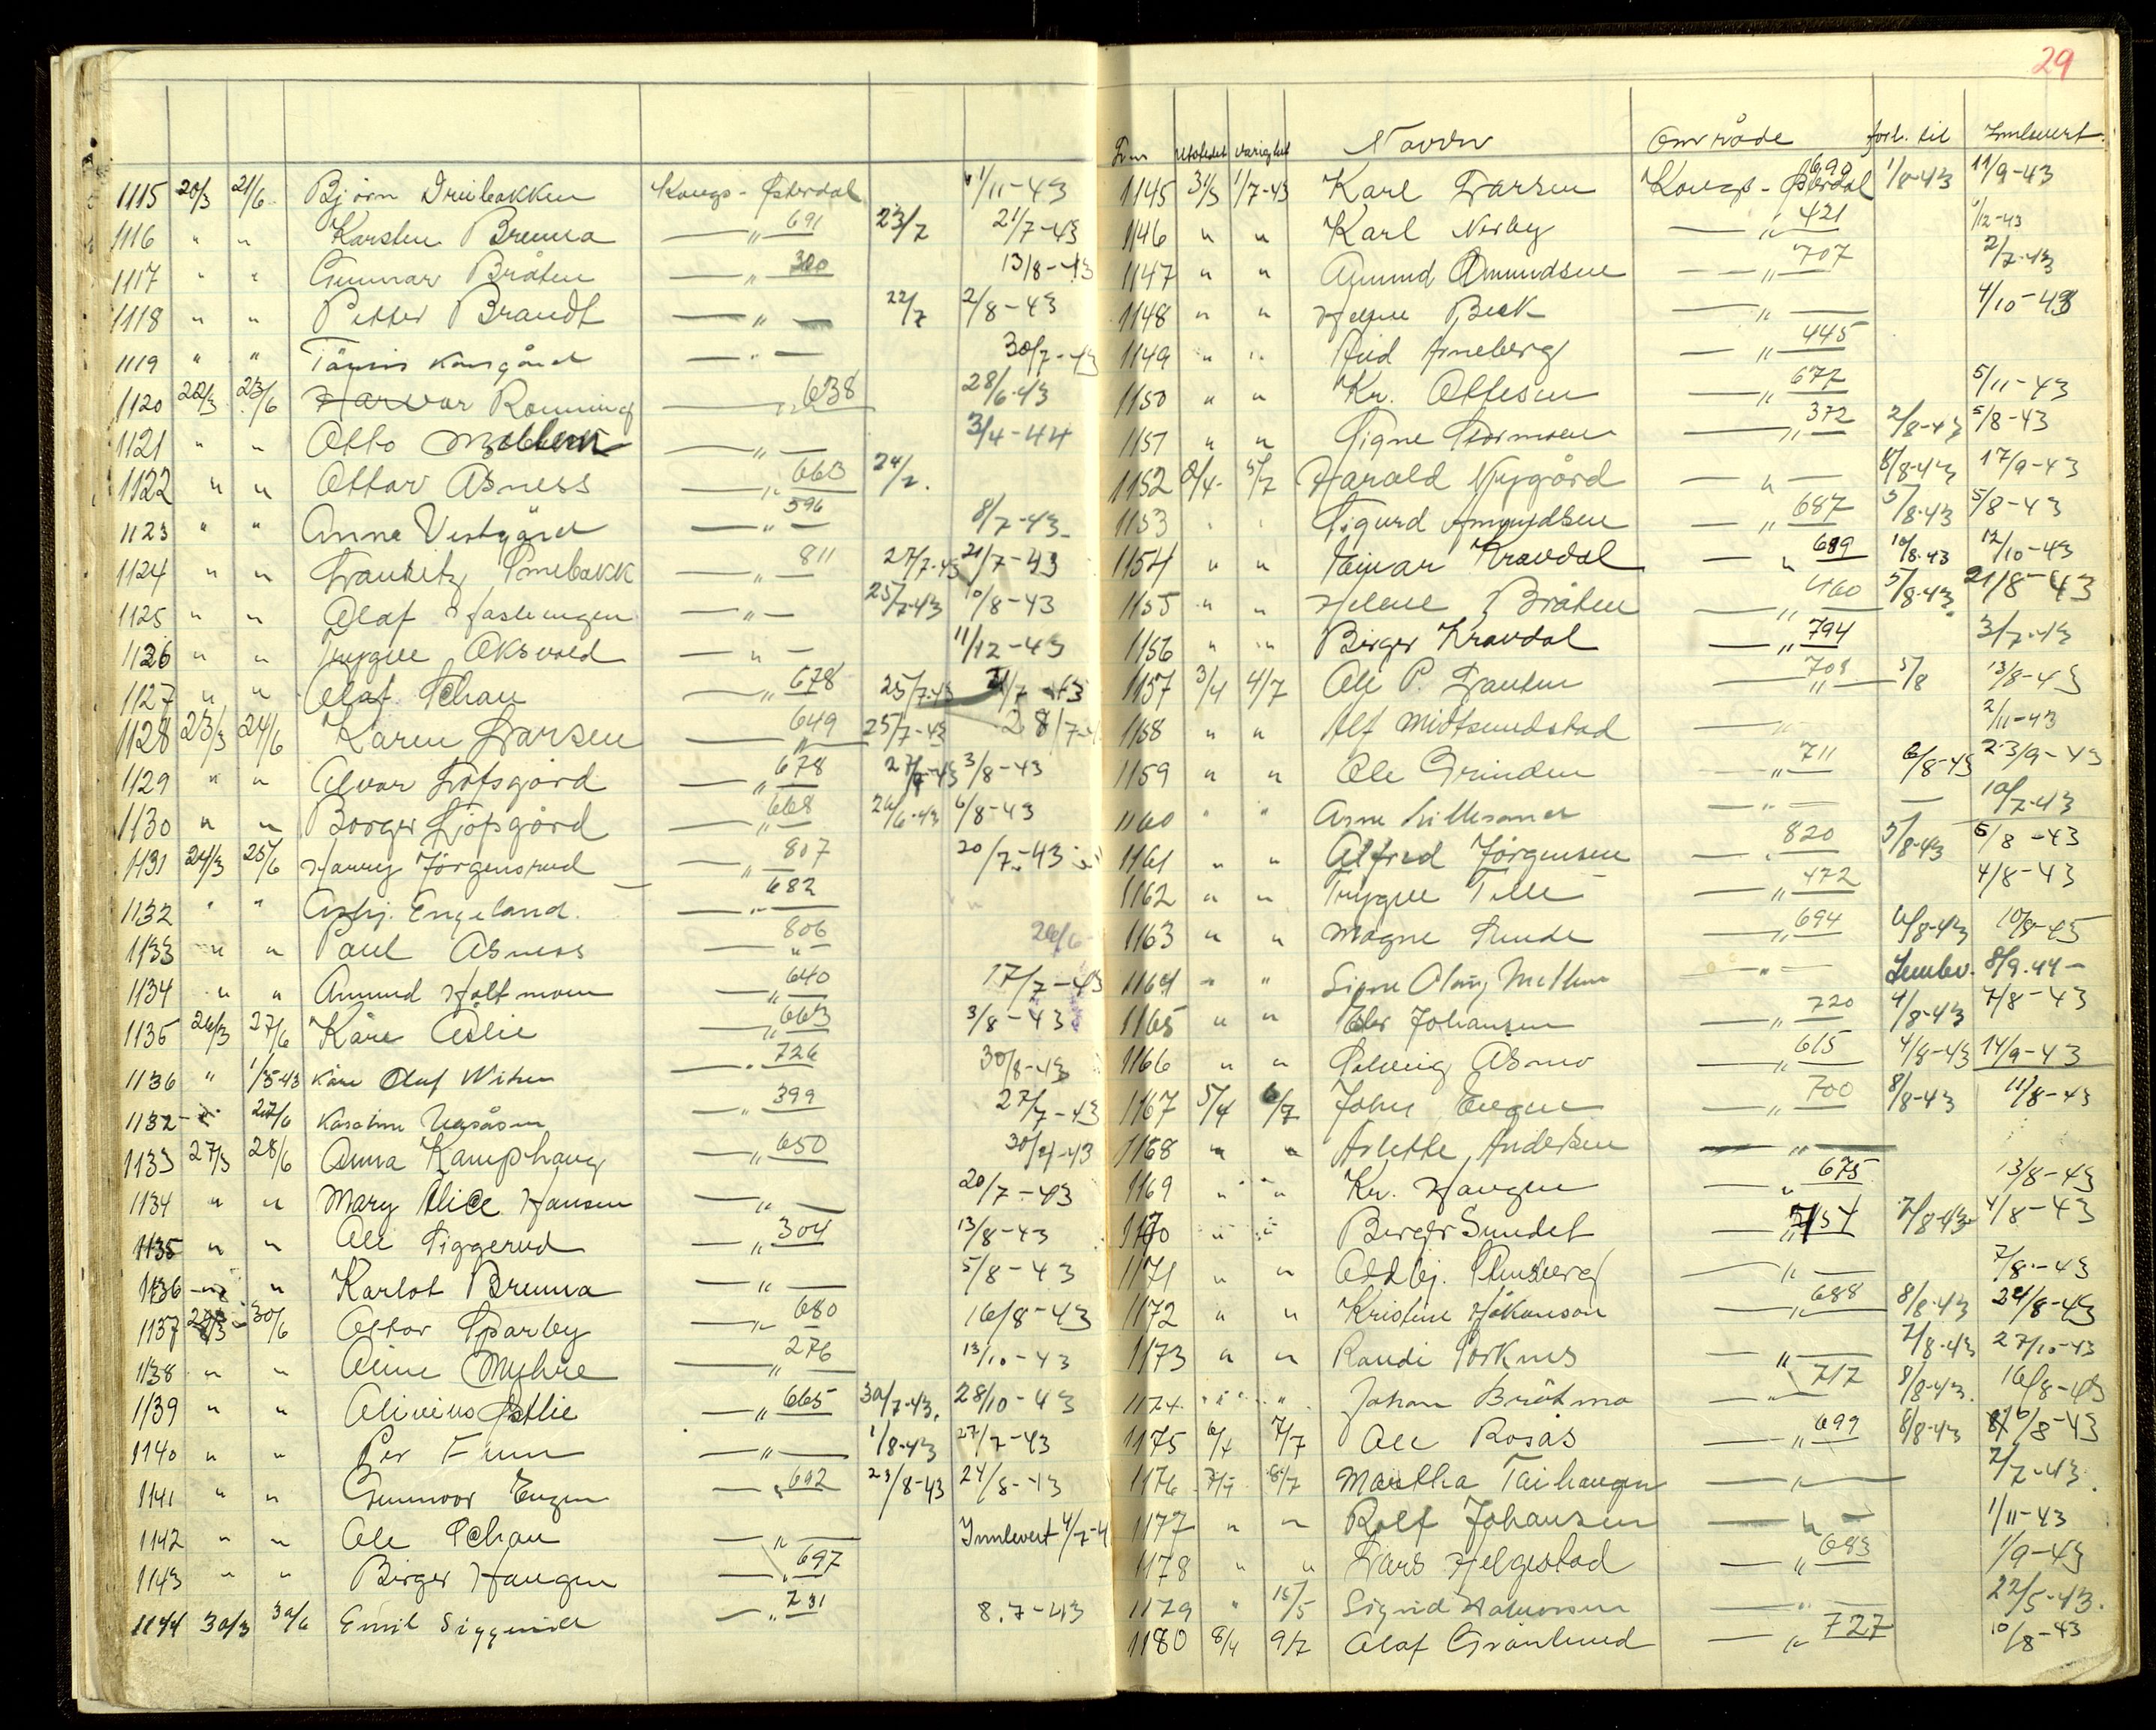 1115 20/3 21/6 Bjørn Kongs-Østerdal 1/11-43
1116 " " Karsten Brenna —"— 691 23/7 21/7-43
1117 " " Gunnar Bråten —"— 300 13/8-43
1118 " " Petter Brandt —"— 22/7 2/8-43
1119 " " —"— 30/7-43
1120 22/3 23/6 Harvar Rønning —"— 638 28/6-43
1121 " " Otto —"— 3/4-44
1122 " " Ottar Åsness —"— 663 24/7.
1123 " " Anna Vestgård —"— 596 8/7-43
1124 " " —"— 811 27/7-43 21/7-43
1125 " " Olaf —"— 25/7-43 10/8-43
1126 " " Trygve Aksvold —"— 11/12-43
1127 " " Olaf Schau —"— 678 25/7-43
1128 23/3 24/6 Karen Larsen —"— 649 25/7-43 28/7-4
1129 " " Alvar Lofsgård —"— 678 3/8-43
1130 " " Borger —"— 668 26/6-43 6/8-43
1131 24/3 25/6 Harry Jörgensrud —"— 807 20/7-43
1132 " " Asbj. Engeland. —"— 682
1133 " " Paul Åsness —"— 806 26/6
1134 " " Amund Holtmoen —"— 640 17/7-43
1135 26/3 27/6 Kåre Åslie —"— 663 3/8-43
1136 " 1/5-43 Kåre Oluf —"— 726 30/8-43
1132 — " 27/6 —"— 399 27/7-43
1133 27/3 28/6 Anna Kamphaug —"— 650
1134 " " Mary Alice Hansen —"— 20/7-43
1135 " " Ole Siggerud —"— 304 13/8-43
1136 — " " Karlot Brenna —"— 5/8-43
1137 30/6 Ottar Sparby —"— 680 16/8-43
1138 " " Aline Myhre —"— 276 13/10-43
1139 " " Olivius Østlie —"— 665 30/7-43. 28/10-43
1140 " " Per —"— 1/8-43 27/7-43
1141 " " Gunvor Engen —"— 692 23/8-43 24/8-43
1142 " " Ole Schau —"— Innlevert 4/7-4
1143 " " Birger Haugen —"— 697
1144 30/3 30/6 Emil —"— 8.7-43
29
Utstedet Varighet Navn Område forl. til Innlevert.
1145 31/3 1/7-43 Karl Larsen Kongs-Østerdal 690 1/8-43 11/9-43
1146 " " Karl Nerby —"— 421 1/12-43
1147 " " Amund Amundsen —"— 707 2/7-43
1148 " " Beck —"— 4/10-43
1149 " " Arneberg —"— 445
1150 " " Kr. Ottesen —"— 677 5/11-43
1151 " " Signe Stormoen —"— 372 2/8-43 5/8-43
1152 2/4 5/7 Harald Nygård —"— 8/8-43 17/9-43
1153 " " Sigurd Amundsen —"— 687 5/8-43 5/8-43
1154 " " Kravdal —"— 689 10/8-43 12/10-43
1155 " " Helene Bråten —"— 460 5/8-43. 21/8-43
1156 " " Birger Kravdal —"— 794 3/7-43
1157 3/4 4/7 Ole P. —"— 708 5/8 13/8-43
1158 " " Alf Midtsundstad —"— 2/11-43
1159 " " Ole Grinden —"— 711 6/8-43 23/9-43
1160 " " Arne —"— — 10/7-43
1161 " " Alfred Jörgensen —"— 820 5/8-43 5/8-43
1162 " " Trygve —"— 472 4/8-43
1163 " " Magne —"— 694 6/8-43
1164 " " —"— 8/9.44-
1165 " " Johansen —"— 720 4/8-43 7/8-43
1166 " " Solveig Åsmo —"— 615 4/8-43 14/9-43
1167 5/4 6/7 John Engen —"— 700 8/8-43 11/8-43
1168 " " Andersen —"—
1169 " " Kr. Haugen —"— 675 13/8-43
1170 " " Birger Sundet —"— 7/8-43 4/8-43
1171 " " Oddbj. —"— 7/8-43
1172 " " Kristine Håkanson —"— 688 8/8-43 24/8-43
1173 " " Randi —"— 7/8-43 27/10-43
1174 " " Johan Bråtmo —"— 717 8/8-43. 16/8-43
1175 6/4 7/7 Ole Rosås —"— 699 8/8-43
1176 7/4 8/7 Martha —"— 7/7-43.
1177 " " Rolf Johansen —"— 1/11-43
1178 " " Lars Helgestad —"— 683 1/9-43
1179 " 15/5 Sigrid —"— 22/5-43.
1180 8/4 9/7 Olaf Grönlund —"— 727 10/8-43